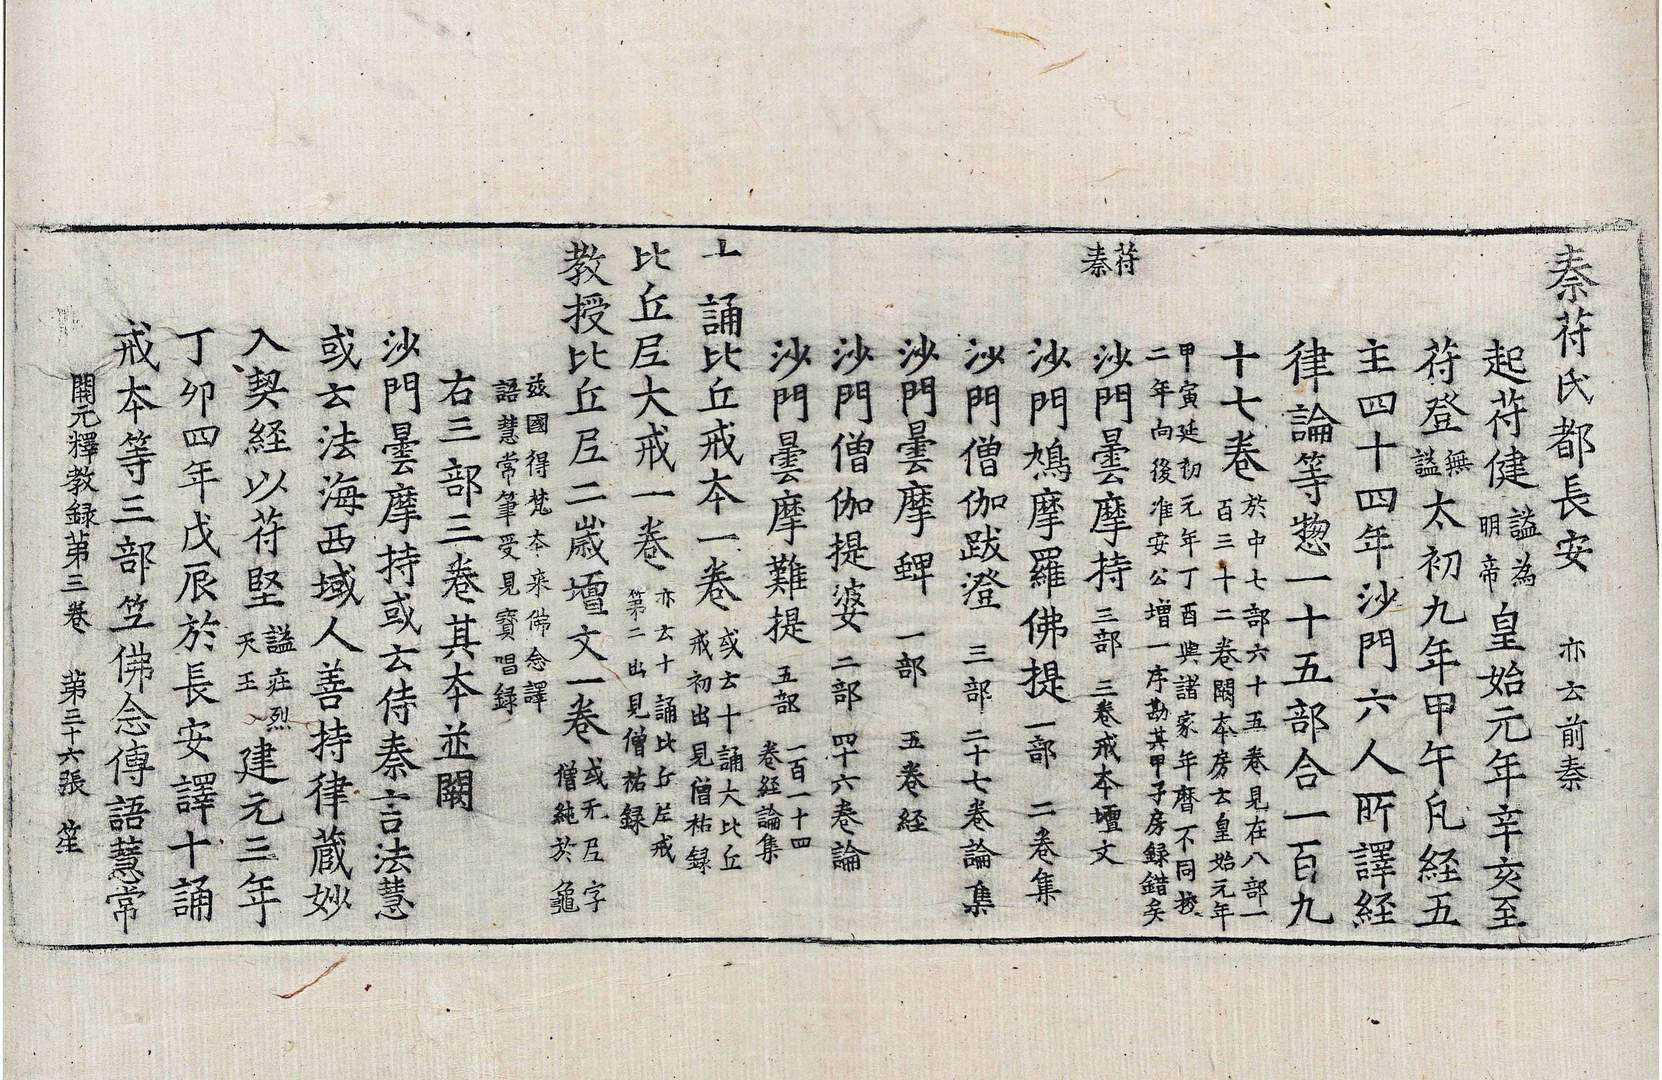 秦苻氏都長安 亦云前秦
起苻健 謚為明帝 皇始元年辛亥至
苻登 無謚 太初九年甲午凡経五
主四十四年沙門六人所譯経
律論等惣一十五部合一百九
十七卷 於中七部六十五卷見在八部一百三十二卷闕本房云皇始元年
甲寅延初元年丁酉與諸家年曆不同挍二年向後准安公增一序勘其甲子房録錯矣
苻秦
沙門曇摩持 三部 三卷戒本壇文
沙門鳩摩羅佛提 一部 二卷集
沙門僧伽跋澄 三部 二十七卷論集
沙門曇摩蜱 一部 五卷経
沙門僧伽提婆 二部 四十六卷論
沙門曇摩難提 五部 一百一十四卷経論集
十誦比丘戒本一卷 或云十誦大比丘戒初出見僧祐録
比丘尼大戒一卷 亦云十誦比丘尼戒第二出見僧祐録
教授比丘尼二歲壇文一卷 或无尼字僧純於龜
兹國得梵本來佛念譯語慧常筆受見寶唱録
右三部三卷其本並闕
沙門曇摩持或云侍秦言法慧
或云法海西域人善持律蔵妙
入契経以苻堅 謚莊烈天王 建元三年
丁卯四年戊辰於長安譯十誦
戒本等三部竺佛念傳語慧常
開元釋教録第三卷 第三十六張 笙